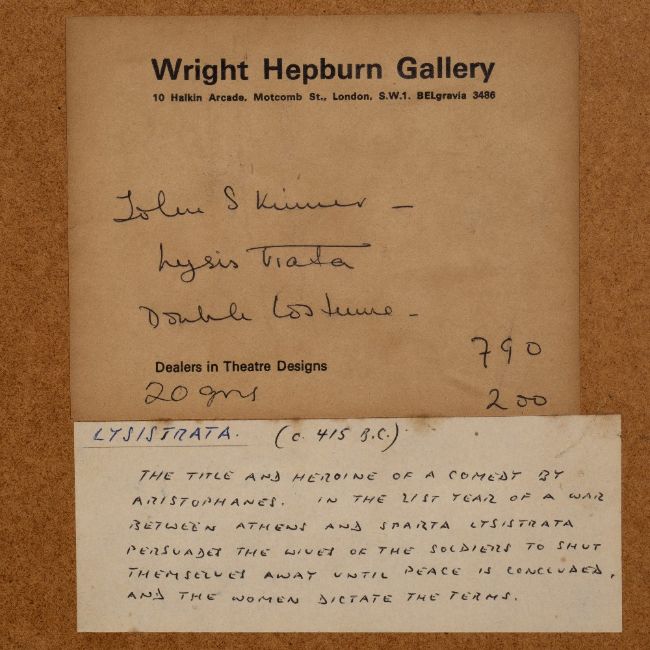 Wright Hepburn Gallery
10 Halkin Arcade, Motcomb St., London, S.W.1. BELgravia 3486
John Skinner —
Lysistrata
Double Costume -
790
Dealers in Theatre Designs
20 gns
200
LYSISTRATA. (c. 415 B.C.)
THE TITLE AND HEROINE OF A COMEDY BY
ARISTOPHANES. IN THE 21ST YEAR OF A WAR
BETWEEN ATHENS AND SPARTA LYSISTRATA
PERSUADES THE WIVES OF THE SOLDIERS TO SHUT
THEMSELVES AWAY UNTIL PEACE IS CONCLUDED,
AND THE WOMEN DICTATE THE TERMS.